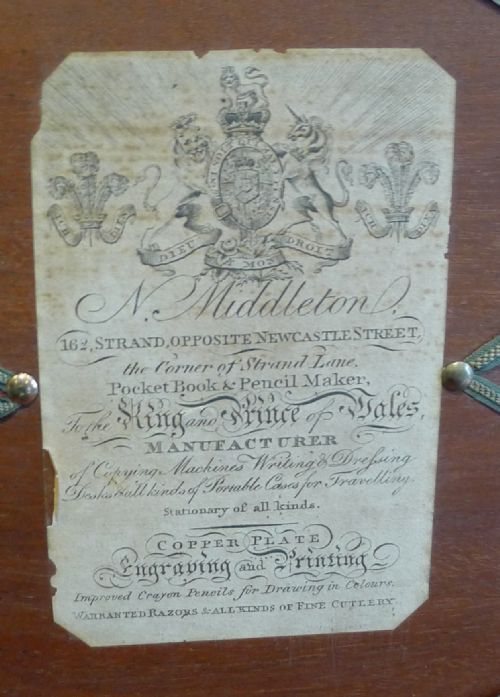 HONI SOIT QUI MAL Y PENSE
ICH DIEN
DIEU ET MON DROIT
ICH DIEN
N. Middleton,
162, STRAND, OPPOSITE NEWCASTLE STREET,
the Corner of Strand Lane.
Pocket Book & Pencil Maker,
To the King and Prince of Wales,
MANUFACTURER
of Copying Machines Writing & Dressing
Desks & all kinds of Portable Cases for Travelling.
Stationary of all kinds.
COPPER PLATE
Engraving and Printing
Improved Crayon Pencils for Drawing in Colours.
WARRANTED RAZORS & ALL KINDS OF FINE CUTLERY.